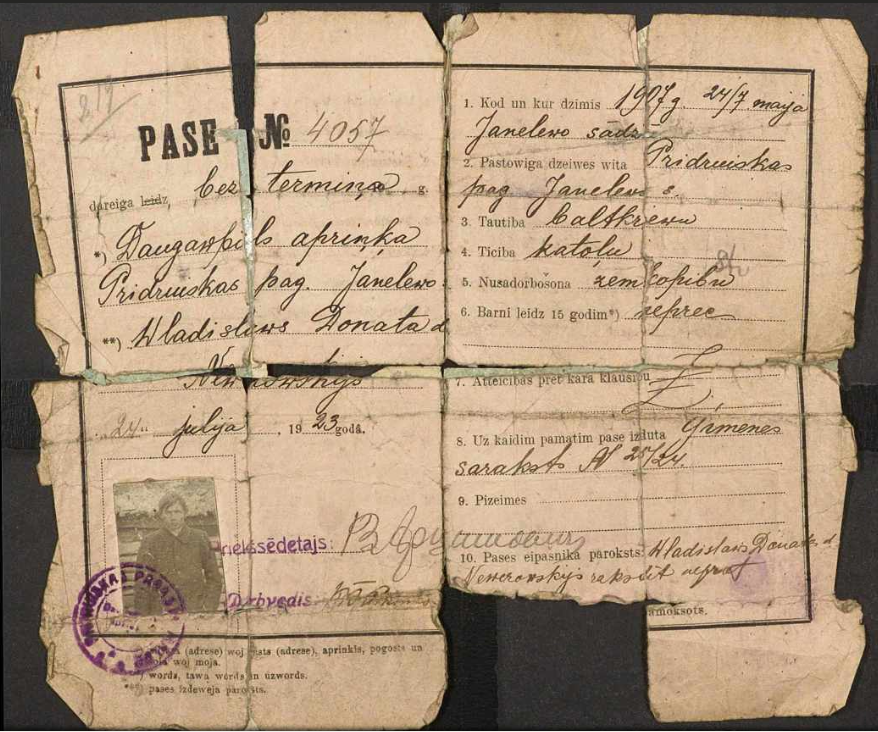 PASE № 4057
dareiga leidz, bez termiņa g.
*) Daugawpils apriņka
Pridruiskas pag. Janelewo
**) Wladislaws Donata d
24. julija, 19 23 godā.
Priekšsēdetajs:
Darbvedis
(adrese) woj ests (adrese), aprinkis, pogosts un
woj moja.
words, tawa wōrds un uzwords.
**) pases izdeweja paroksts.
1. Kod un kur dzimis 1907 g 24/7 maijā
Janelewo sādz
2. Pastowiga dzeiwes wita Pridruiskas
pag Janelewo s.
3. Tautiba baltkrewu
4. Ticiba katoļu
5. Nusadorbošona zemkopibu
6. Barni leidz 15 godim*) neprec
7. Atteicibas pret kara klausibu
8. Uz kaidim pamatim pase izduta Ģimenes
saraksts N 25/24.
9. Pizeimes
10. Pases eipasnika paroksts: Wladislaws Donata d
Newerowskys rakstit neprot
amoksots.